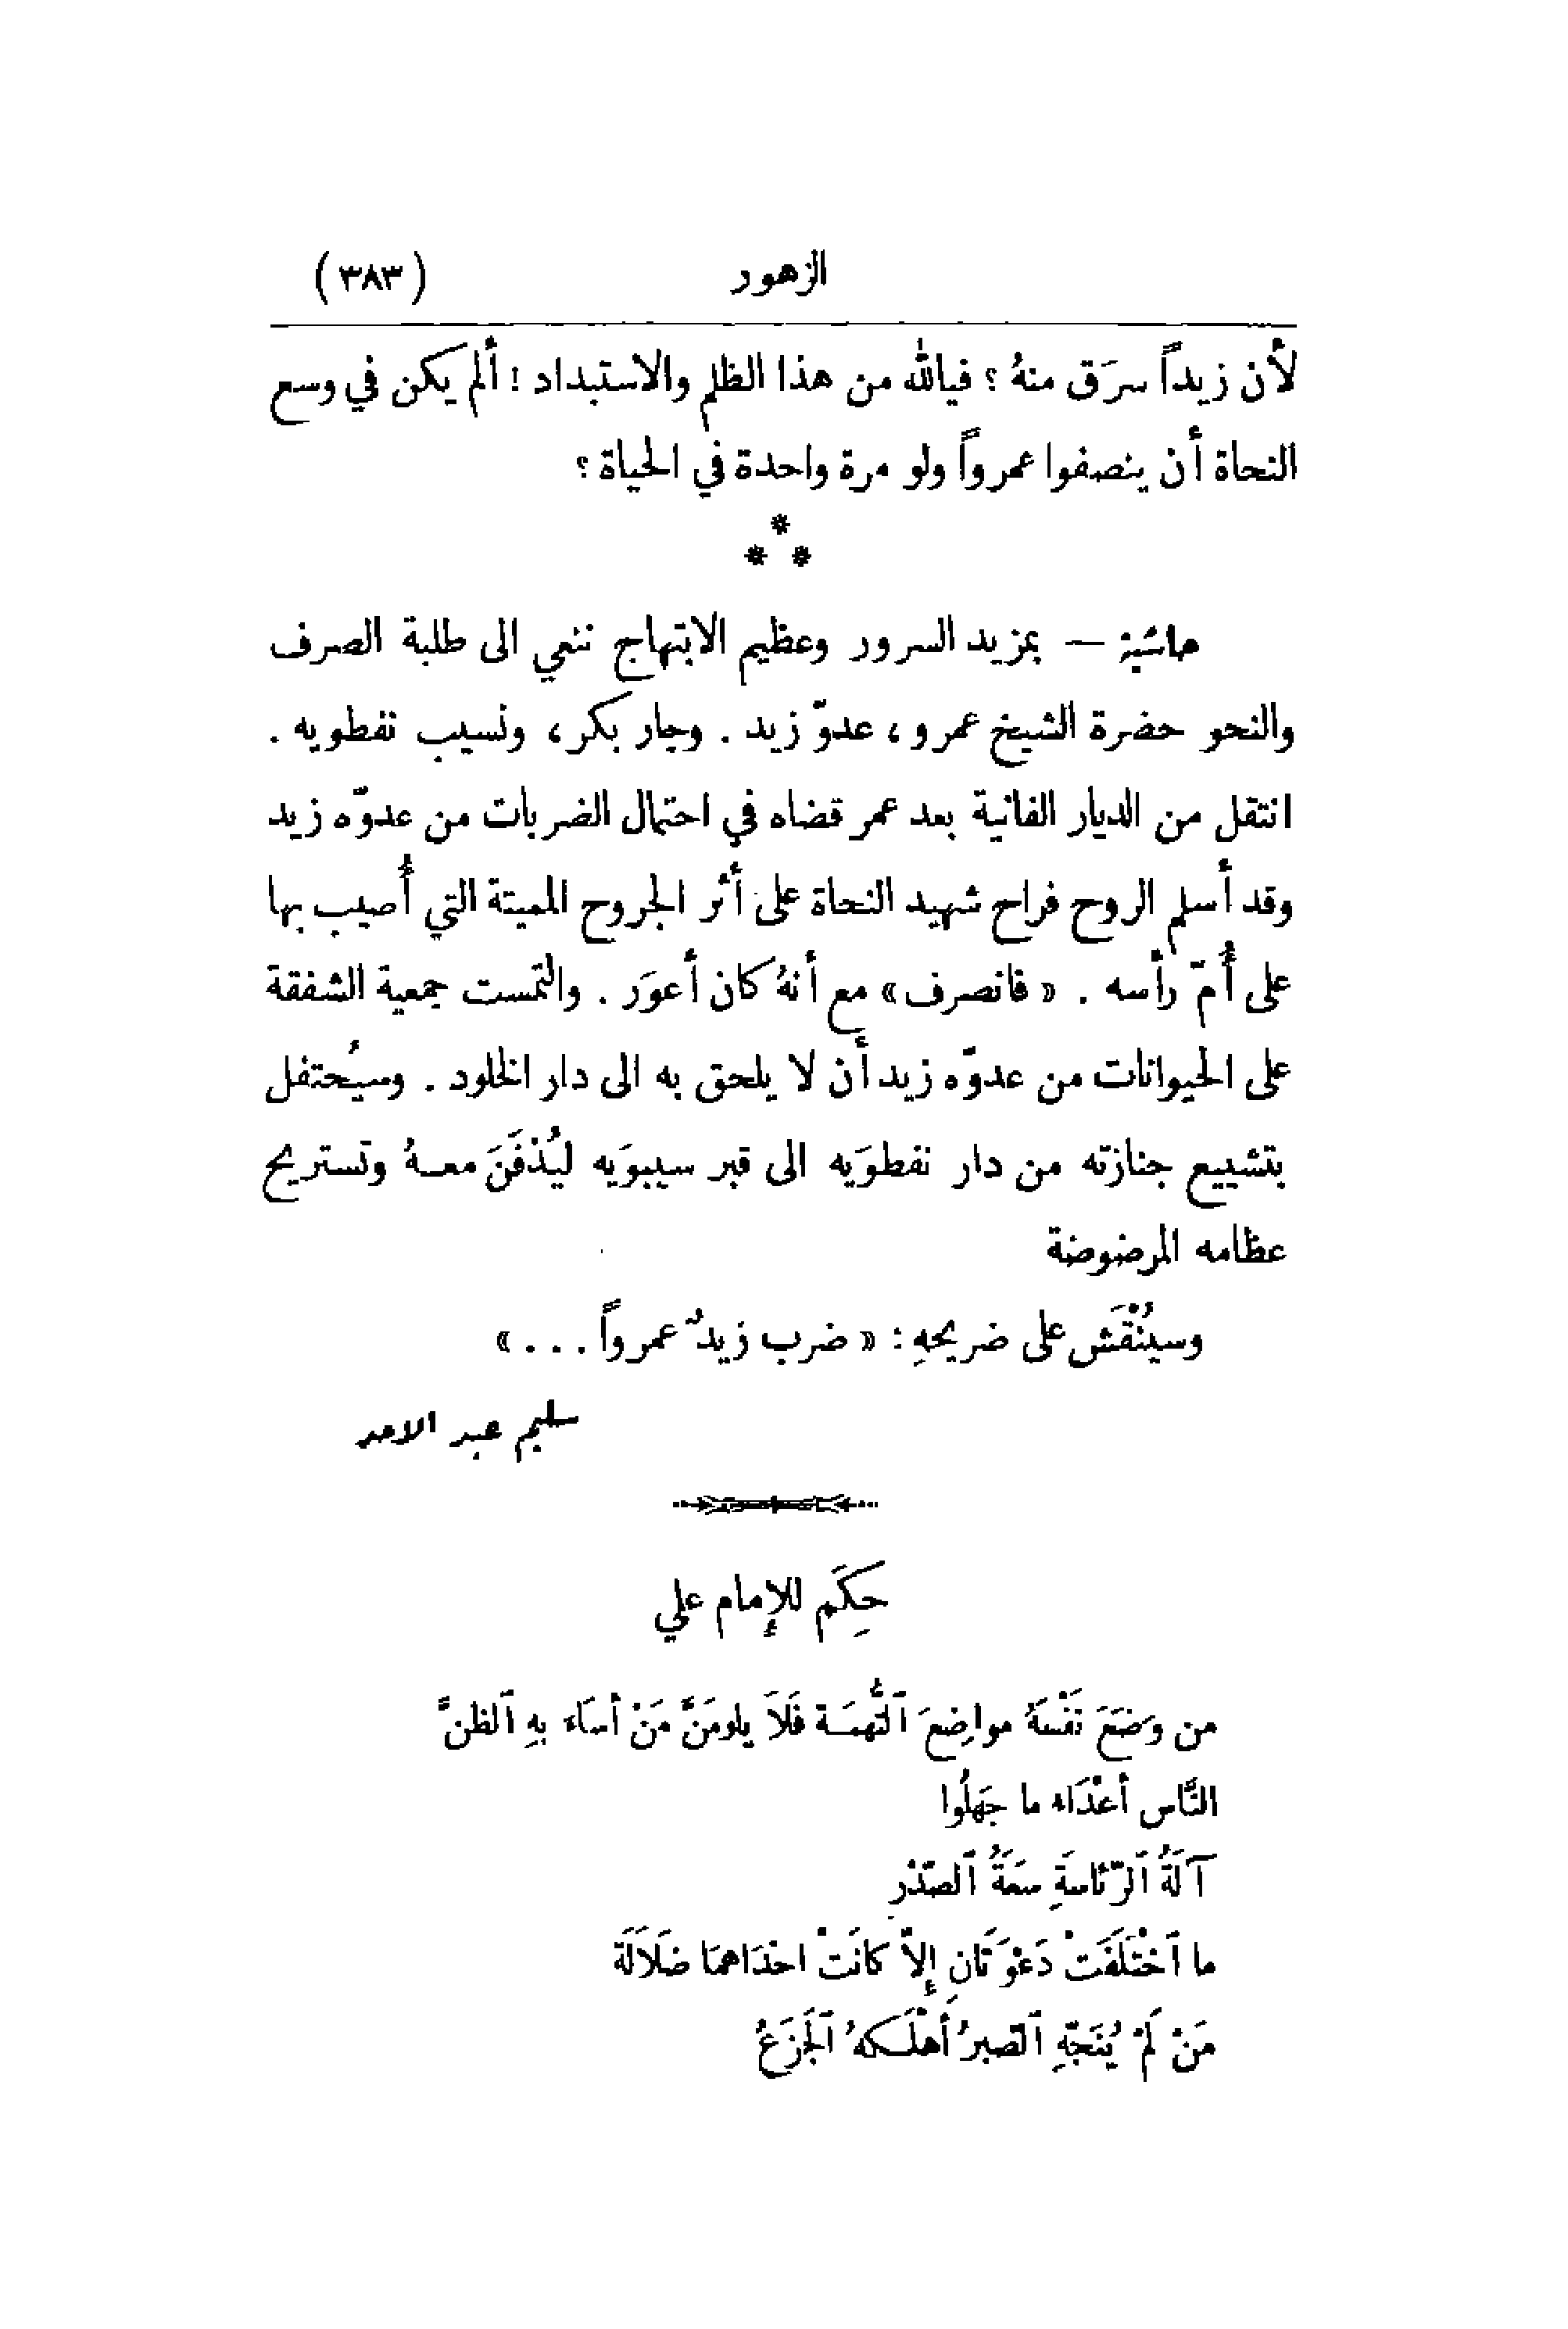 الزهور (٣٨٣)
لأن زيداً سرَق منهُ ؟ فيالله من هذا الظلم والاستبداد ! ألم يكن في وسع
النحاة أن ينصفوا عمرواً ولو مرة واحدة في الحياة ؟
*
* *
حاشية — بمزيد السرور وعظيم الابتهاج ننعي الى طلبة الصرف
والنحو حضرة الشيخ عمرو ، عدوّ زيد . وجار بكر ، ونسيب نفطويه .
انتقل من الديار الفانية بعد عمر قضاه في احتمال الضربات من عدوّه زيد
وقد أسلم الروح فراح شهيد النحاة على أثر الجروح المميتة التي أُصيب بها
على أُمّ رأسه . « فانصرف » مع أنهُ كان أعوَر . والتمست جمعية الشفقة
على الحيوانات من عدوّه زيد أن لا يلحق به الى دار الخلود . وسيُحتفل
بتشييع جنازته من دار نفطوَيه الى قبر سيبوَيه ليُدْفَنَ معـهُ وتستريح
عظامه المرضوضة
وسيُنْقَش على ضريحهِ : « ضرب زيدٌ عمرواً . . . »
سليم عبد الاحد
حِكَم للإمام علي
من وَضَعَ نَفْسَهُ مواضِعَ ٱلتُّهمَـة فَلاَ يلومَنَّ مَنْ أسَاءَ بهِ ٱلظنَّ
النَّاس أعْدَاء ما جَهلُوا
آلَةُ ٱلرّئاسَةِ سَعَةُ ٱلصّدْر
ما ٱخْتَلَفَتْ دَعْوَتَانِ إلاّ كانَتْ احْدَاهمَا ضَلاَلَة
مَنْ لَمْ يُنَجّهِ ٱلصبرُ أهْلَـكهُ ٱلجَزَعُ